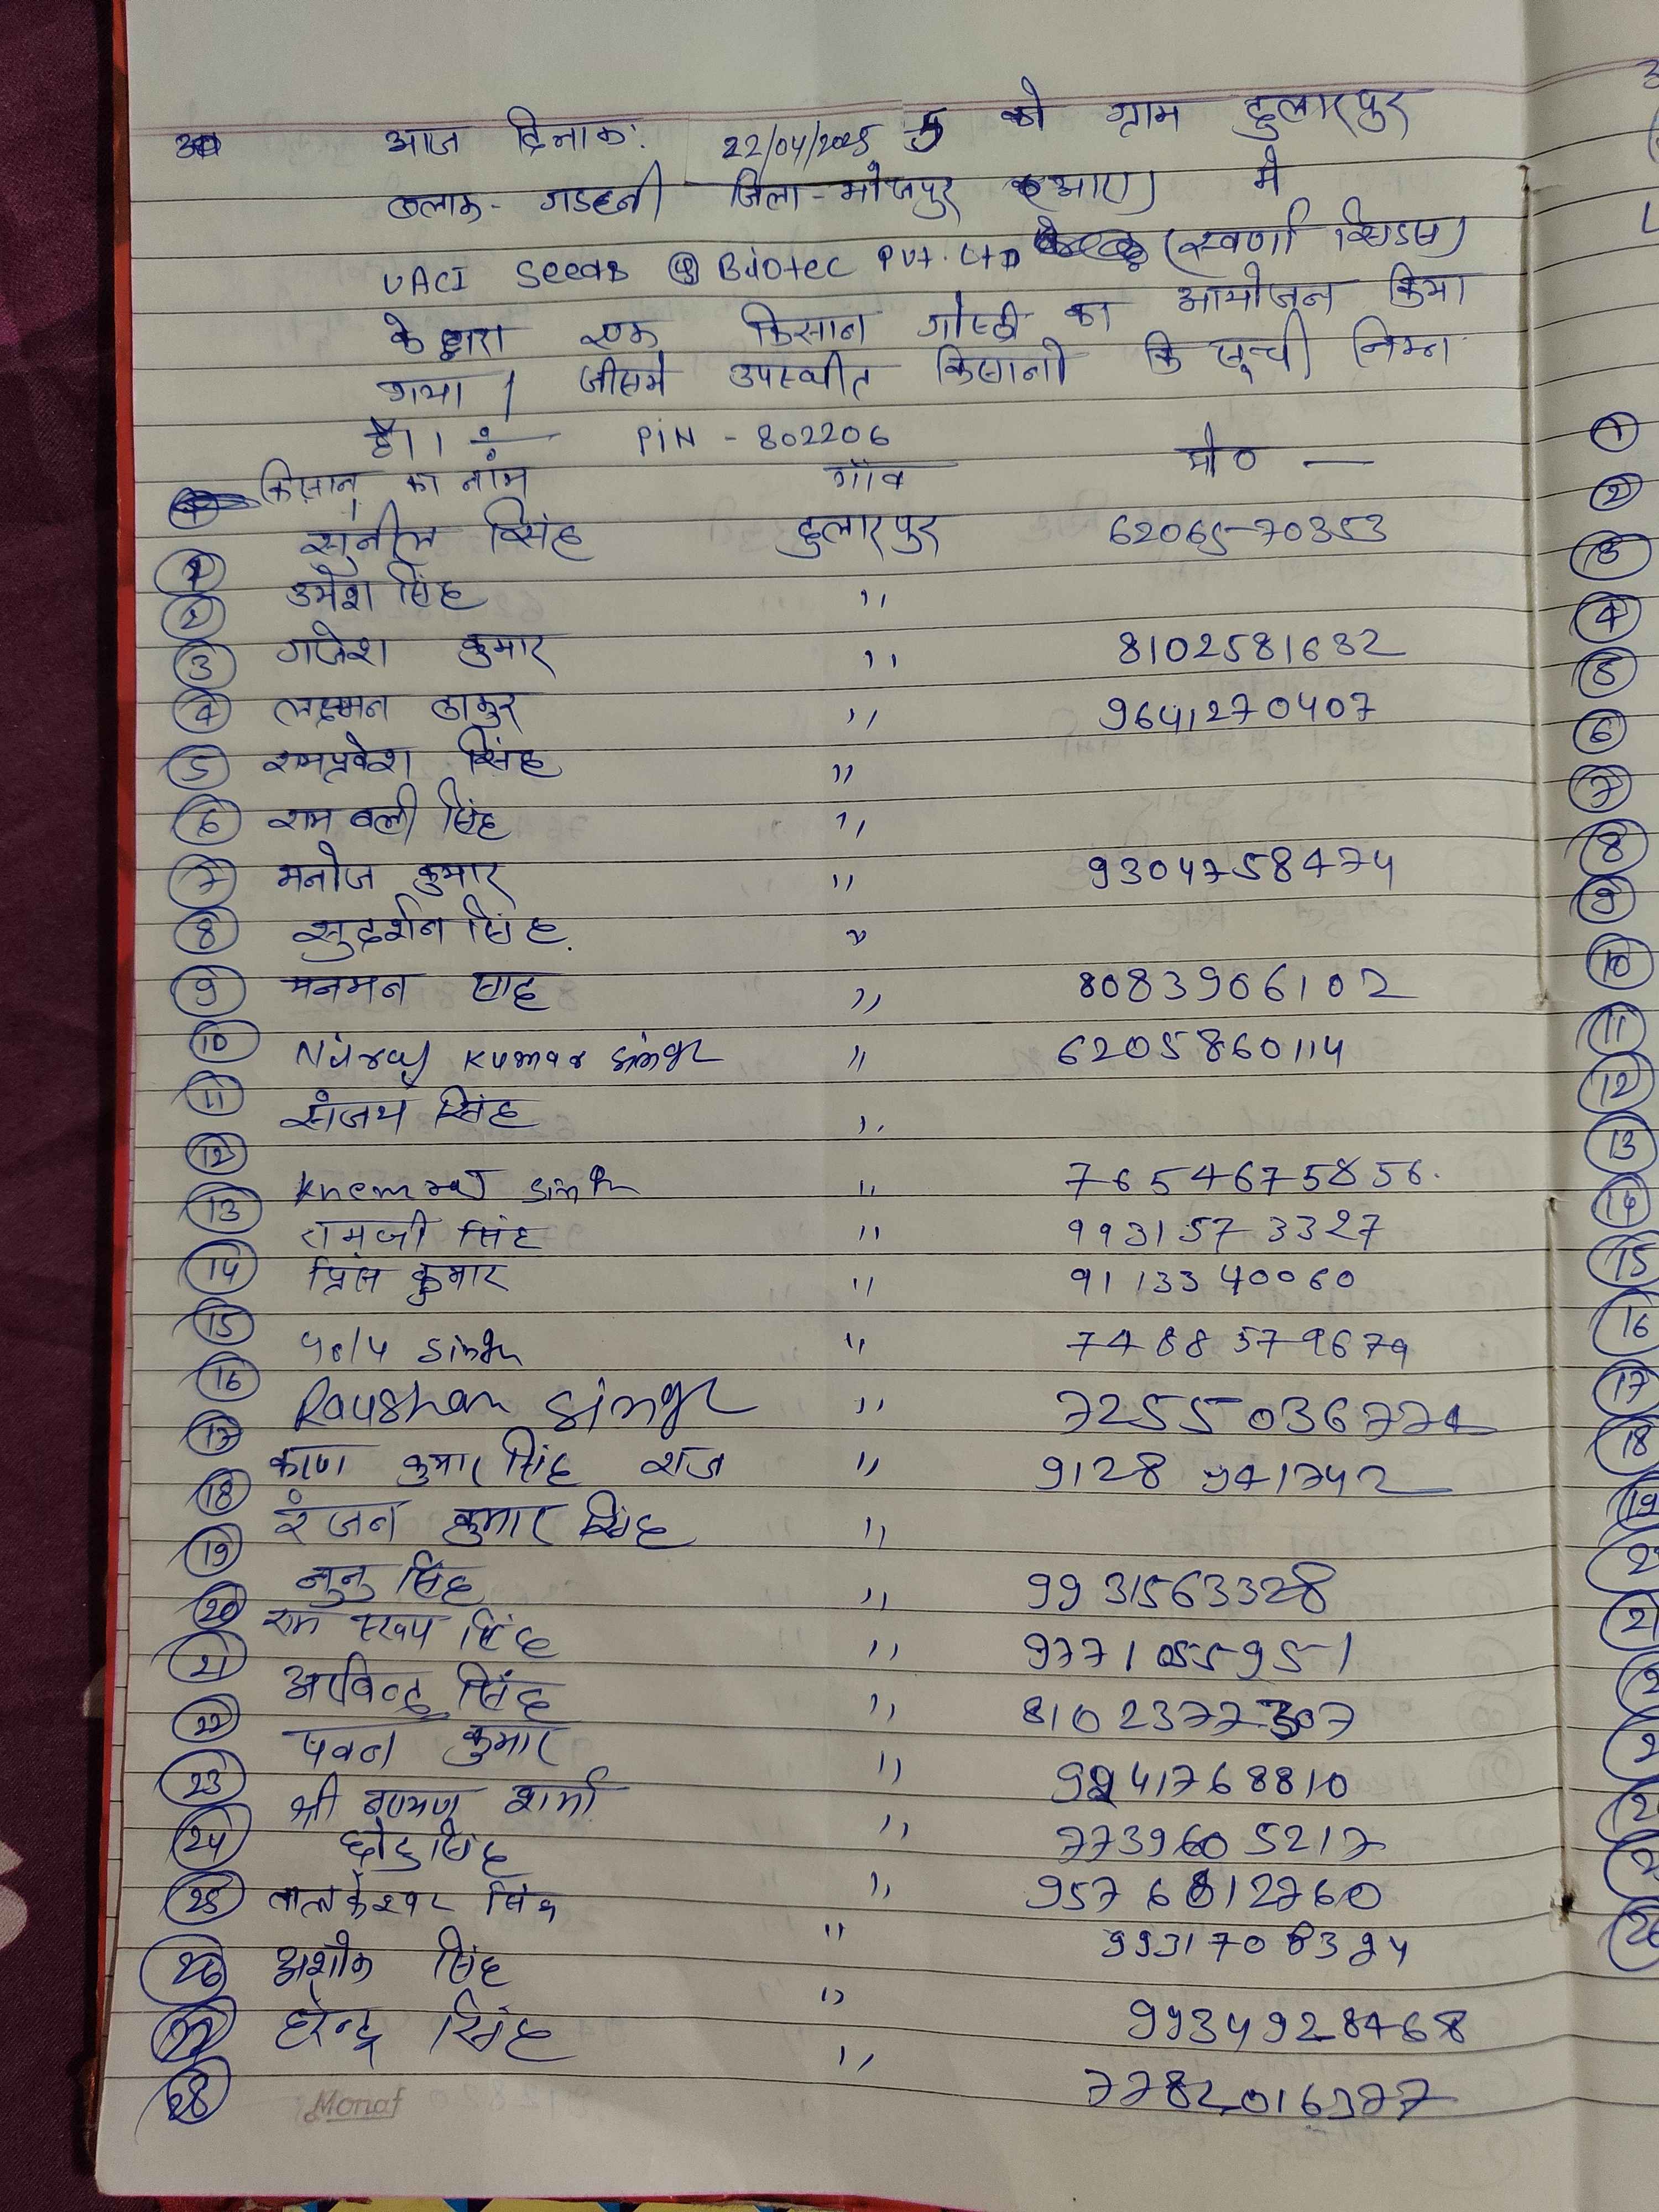 आज दिनाक: 22/04/2025 को ग्राम दुलारपुर
ब्लाक - गडहनी जिला - भोजपुर में
UACI Seeds Biotec PVT. LTD (स्वर्णा सिडस)
के द्वारा एक किसान गोष्ठी का आयोजन किया
गया । जीसमे उपस्थीत किसानो कि सूची निम्न
है।। PIN - 802206
किसान का नाम गाँव मो० —
1 सुनील सिंह दुलारपुर 62065-70353
2 उमेश सिंह "
3 गणेश कुमार " 8102581632
4 लक्ष्मन ठाकुर " 9641270407
5 रामप्रवेश सिंह "
6 राम वली सिंह "
7 मनोज कुमार " 9304758474
8 सुदर्शन सिंह "
9 मनमन साह " 8083906102
10 Niraj Kumar Singh " 6205860114
11 संजय सिंह "
12 Khemraj Singh " 7654675856.
13 रामजी सिंह " 9931573327
14 प्रिंस कुमार " 9113340060
15 Singh " 7488579679
16 Raushan Singh " 7255036774
17 करण कुमार सिंह राज " 9128941742
18 रंजन कुमार सिंह "
19 नुनु सिंह " 9931563328
20 राम स्वरूप सिंह " 9771055951
21 अरविन्द्र सिंह " 8102377307
22 पवन कुमार " 41768810
23 श्री शर्मा " 7739605217
24 छोटु सिंह " 9576812760
25 तारकेश्वर सिंह " 9931708324
26 अशोक सिंह " 9934928468
27 हरेन्द्र सिंह " 7782016377
28
Monaf
1
2
3
4
5
6
7
8
9
10
11
12
13
14
15
16
17
18
19